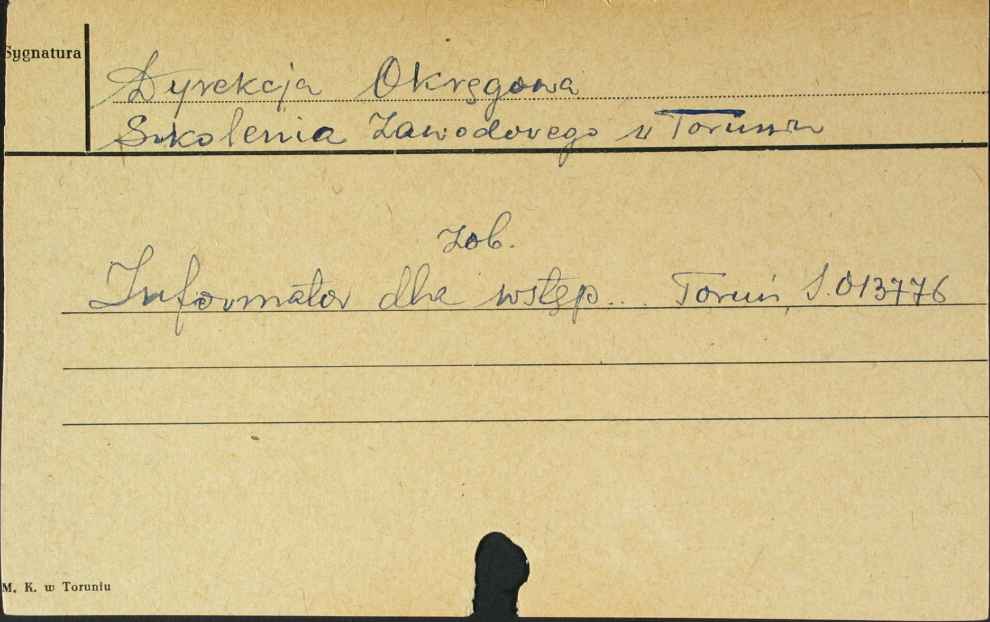 Sygnatura
Dyrekcja Okręgowa
Szkolenia Zawodowego w Toruniu
zob.
Informator dla wstęp... Toruń, S.013776
M. K. w Toruniu